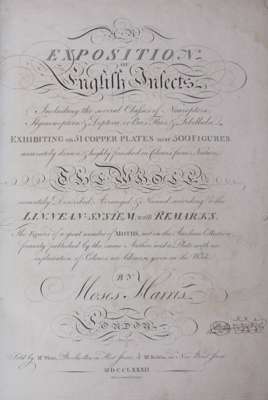 AN
EXPOSITION
OF
English Insects
Including the several Classes of Neuroptera,
Hymenoptera & Diptera, or Bees, Flies & Libellulæ
EXHIBITING on 51 COPPER PLATES near 500 FIGURES
accurately drawn & highly finished in Colours from Nature
THE WHOLE
minutely Described Arranged & Named according to the
LINNEAN SYSTEM with REMARKS
The Figures of a great number of MOTHS, not in the Aurelian Collection
formerly published by the same Author and a Plate with an
explanation of Colours are given in the Work
BY
Moses Harris
LONDON
Sold by Mr White, Bookseller in Fleet street, & Mr Robson, in New Bond street
MDCCLXXXII